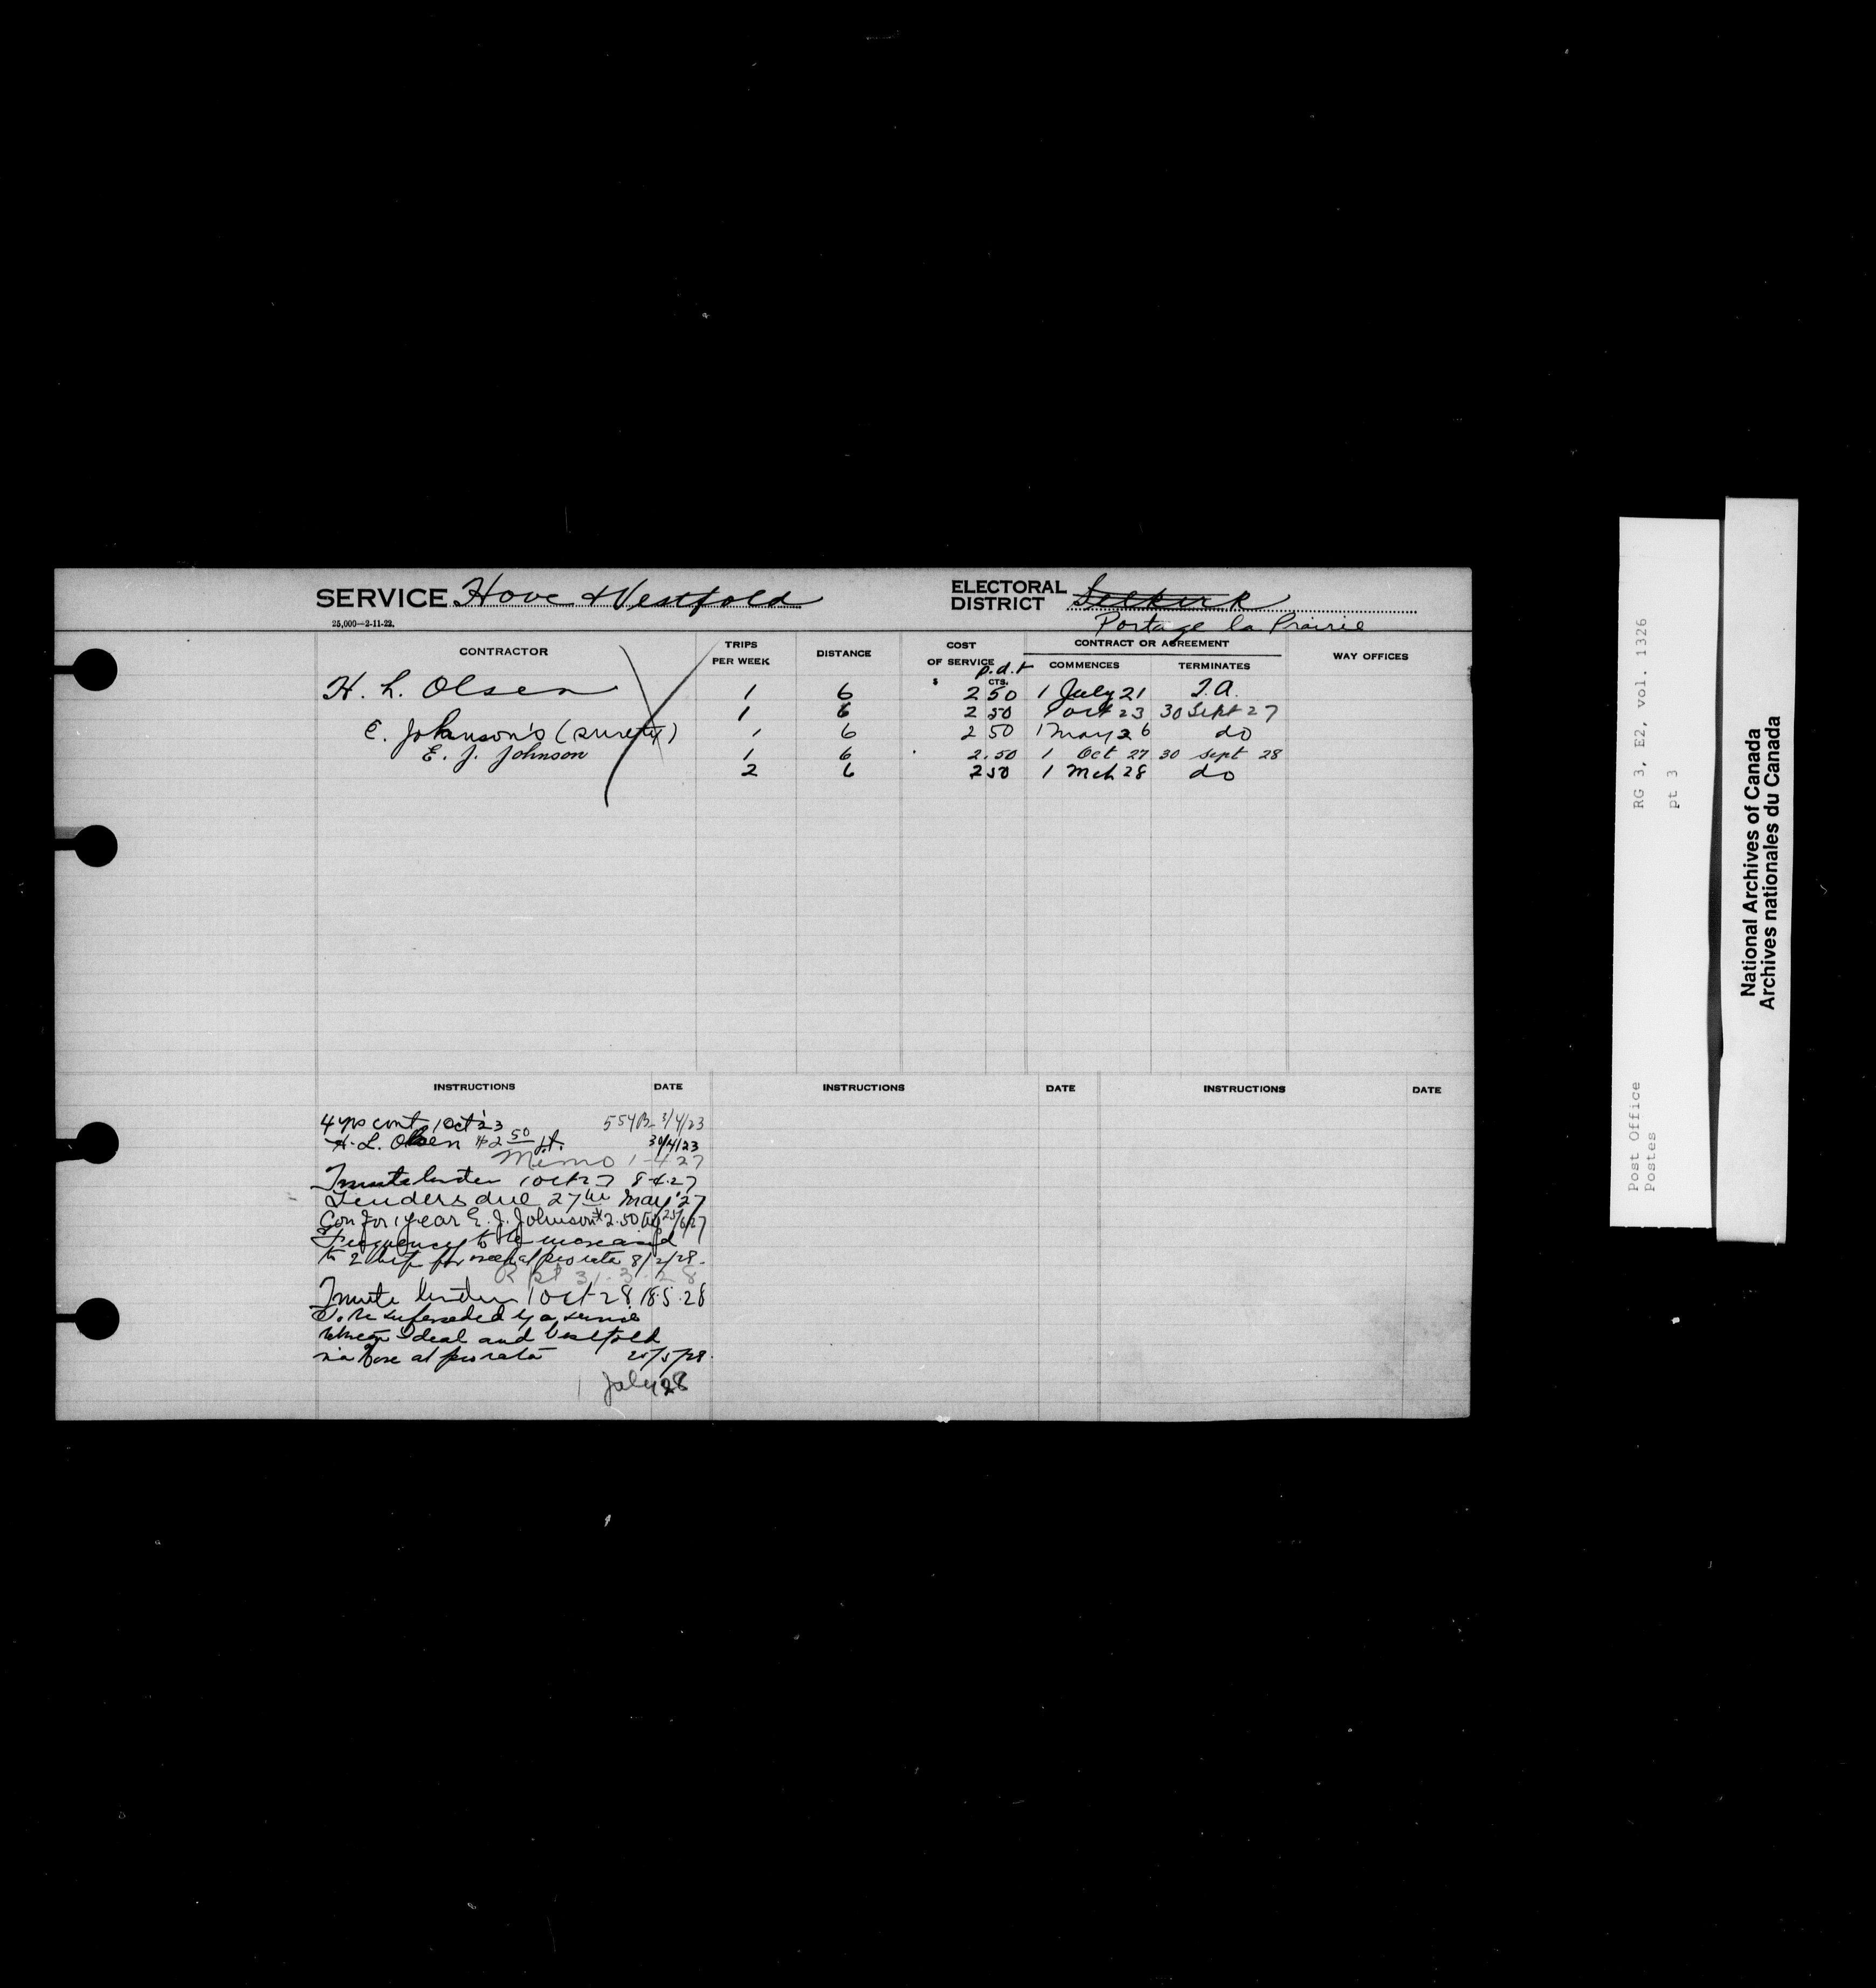 SERVICE Hove & Vestfold
25,000—2-11-22.
ELECTORAL DISTRICT Selkirk
Portage la Prairie
CONTRACTOR
TRIPS PER WEEK
DISTANCE
COST OF SERVICE
p.d.t
$ CTS.
CONTRACT OR AGREEMENT
COMMENCES
TERMINATES
WAY OFFICES
H. L. Olsen 1 6 2 50 1 July 21 T.A.
1 6 2 50 1 Oct 23 30 Sept 27
E. Johnson's (surety) 1 6 2 50 1 May 26 do
E. J. Johnson 1 6 2.50 1 Oct 27 30 Sept 28
2 6 2 50 1 Mch 28 do
INSTRUCTIONS DATE INSTRUCTIONS DATE INSTRUCTIONS DATE
4 yrs cont 1 Oct '23 554B 3/4/23
H. L. Olsen $2 50 30/4/23
Memo 1-4-27
Invite tender 1 Oct 27 8-4-27
Tenders due 27th May '27
Con for 1 year E. J. Johnson $2.50 25/6/27
Frequency to be increased
to 2 at pro rata 8/2/28.
Rpt 31.3.28
Invite tender 1 Oct 28 18.5.28
To be superseded by a service
between Ideal and Vestfold
via Hove at pro rata 25/5/28.
1 July 28
RG 3, E2, vol. 1326
pt 3
Post Office
Postes
National Archives of Canada
Archives nationales du Canada